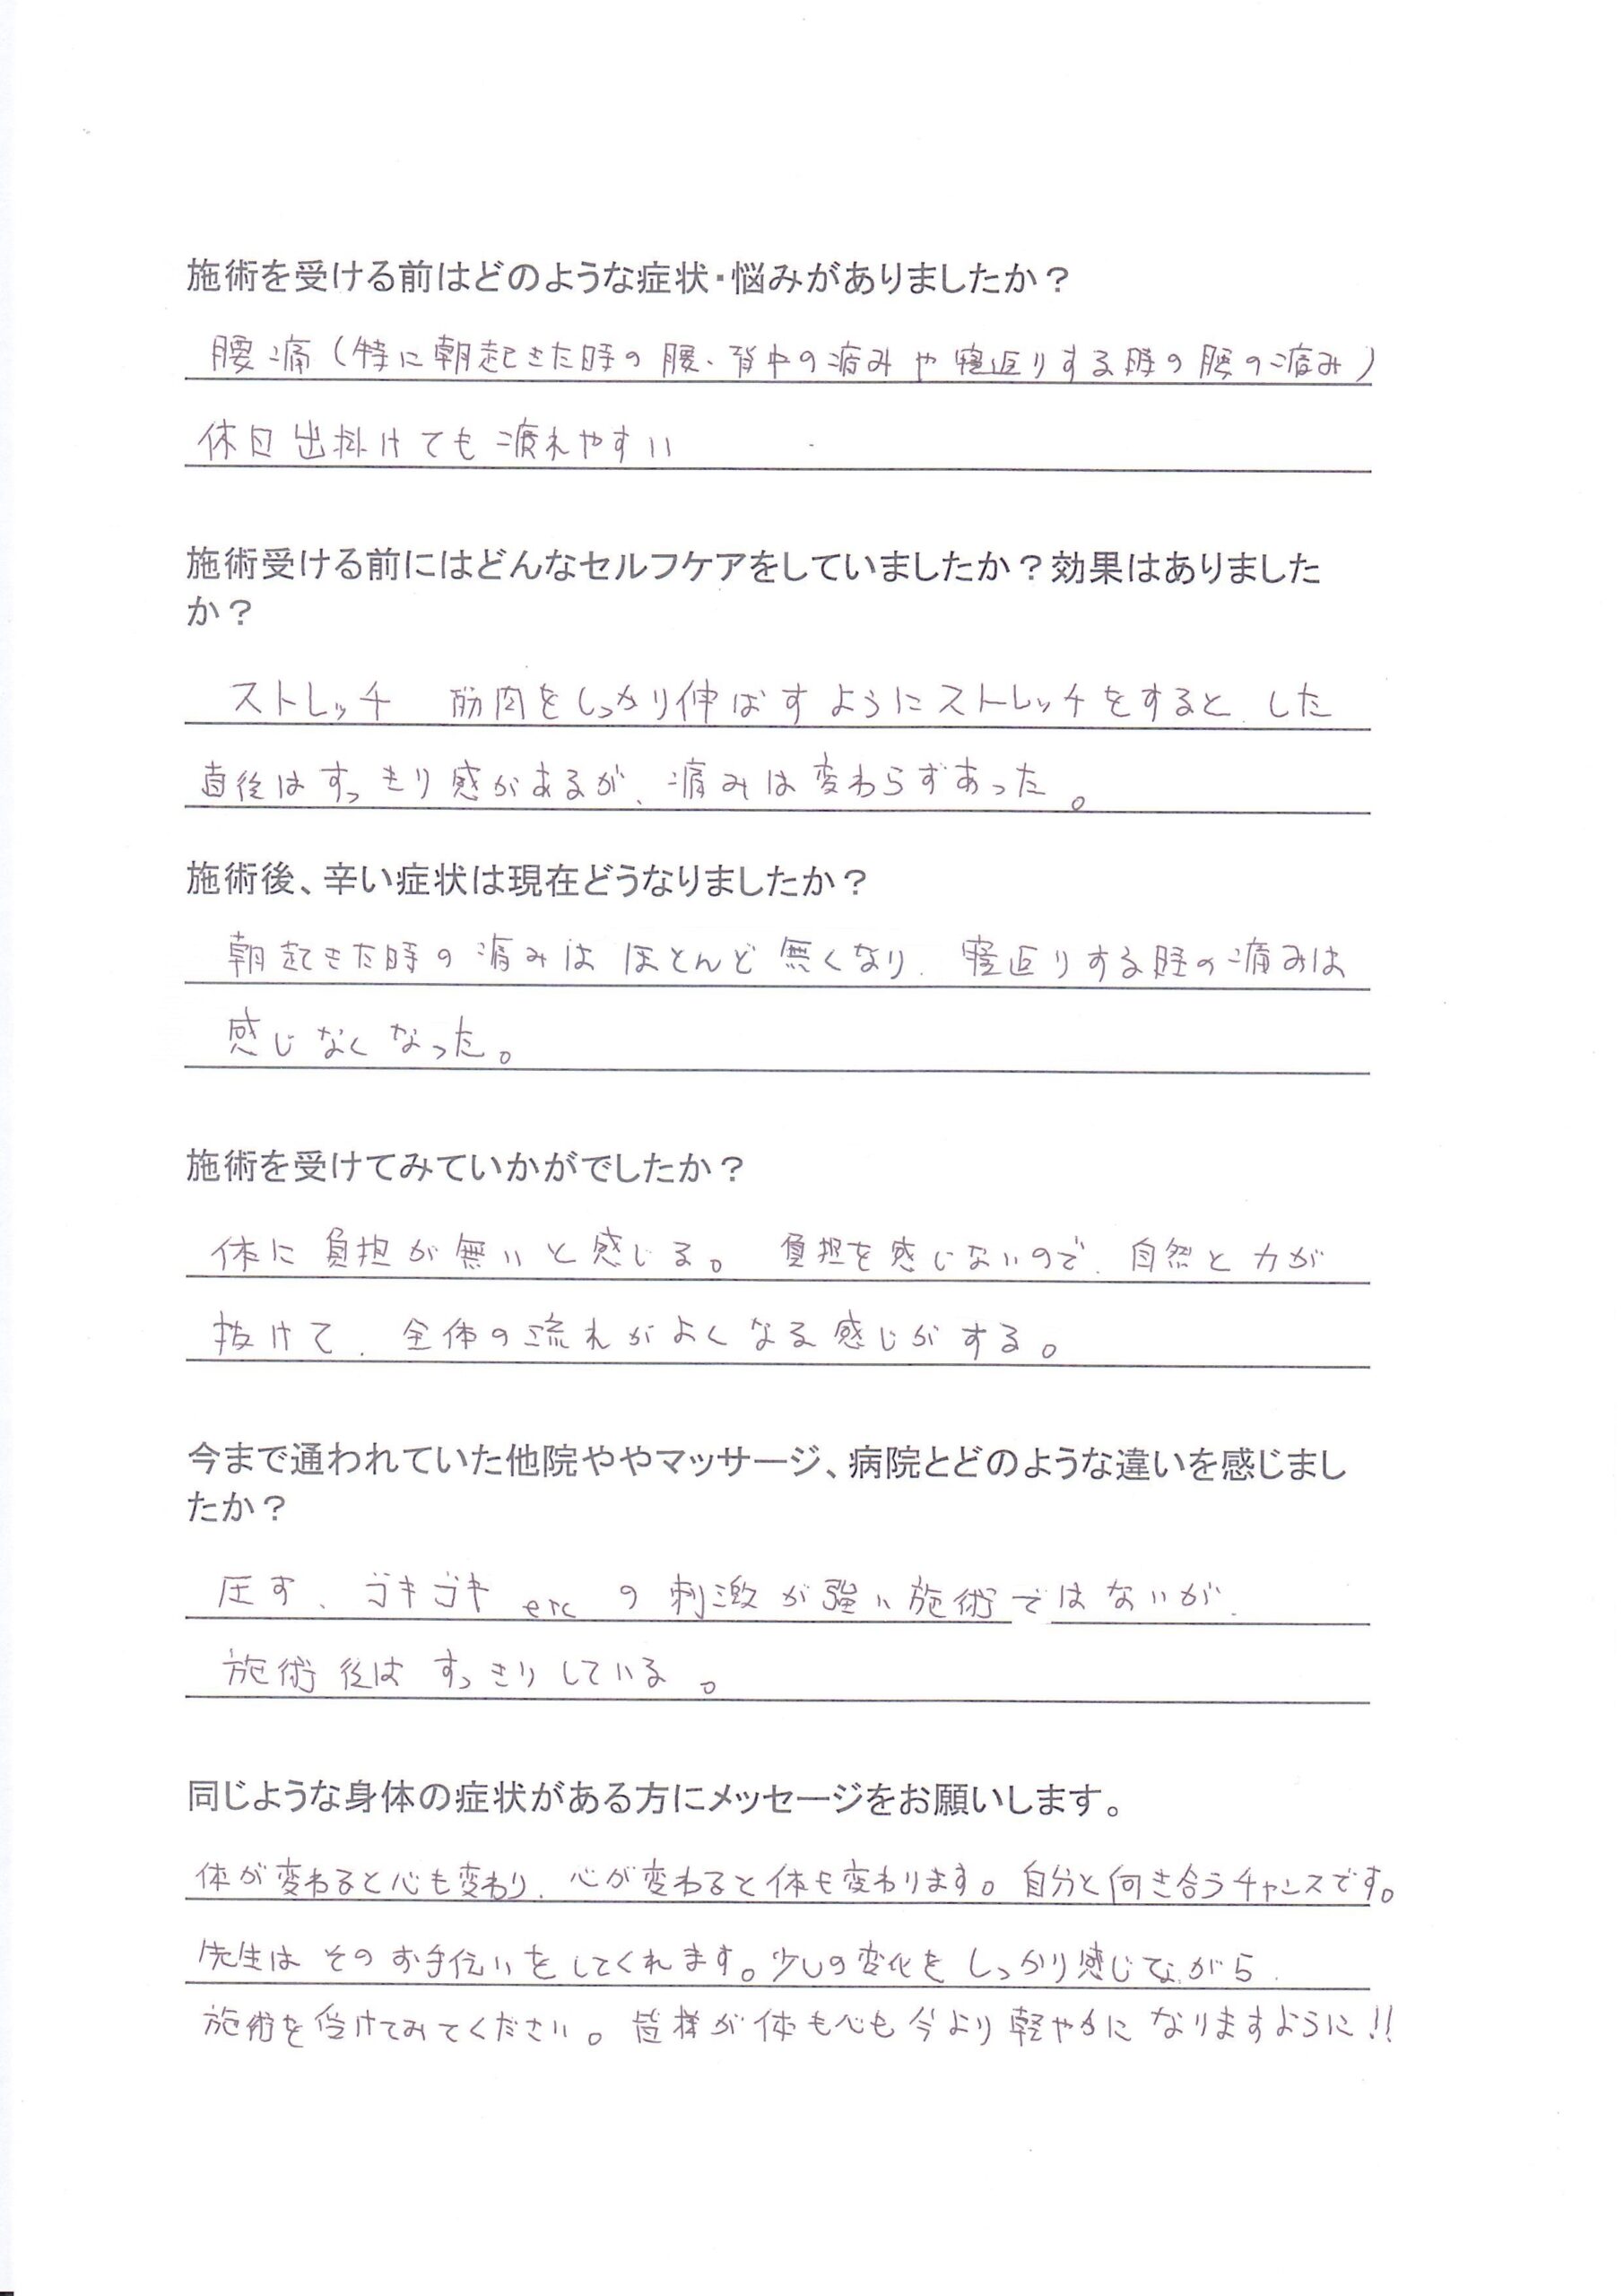 施術を受ける前はどのような症状・悩みがありましたか？
腰痛（特に朝起きた時の腰、背中の痛みや寝返りする時の腰の痛み）
休日出掛けても疲れやすい
施術受ける前にはどんなセルフケアをしていましたか？効果はありました
か？
ストレッチ　筋肉をしっかり伸ばすようにストレッチをすると、した
直後はすっきり感があるが、痛みは変わらずあった。
施術後、辛い症状は現在どうなりましたか？
朝起きた時の痛みはほとんど無くなり、寝返りする時の痛みは
感じなくなった。
施術を受けてみていかがでしたか？
体に負担が無いと感じる。　負担を感じないので、自然と力が
抜けて、全体の流れがよくなる感じがする。
今まで通われていた他院ややマッサージ、病院とどのような違いを感じまし
たか？
圧す、ゴキゴキ etc の刺激が強い施術ではないが、
施術後はすっきりしている。
同じような身体の症状がある方にメッセージをお願いします。
体が変わると心も変わり、心が変わると体も変わります。自分と向き合うチャンスです。
先生はそのお手伝いをしてくれます。少しの変化をしっかり感じてながら、
施術を受けてみてください。皆様が体も心も今より軽やかになりますように!!